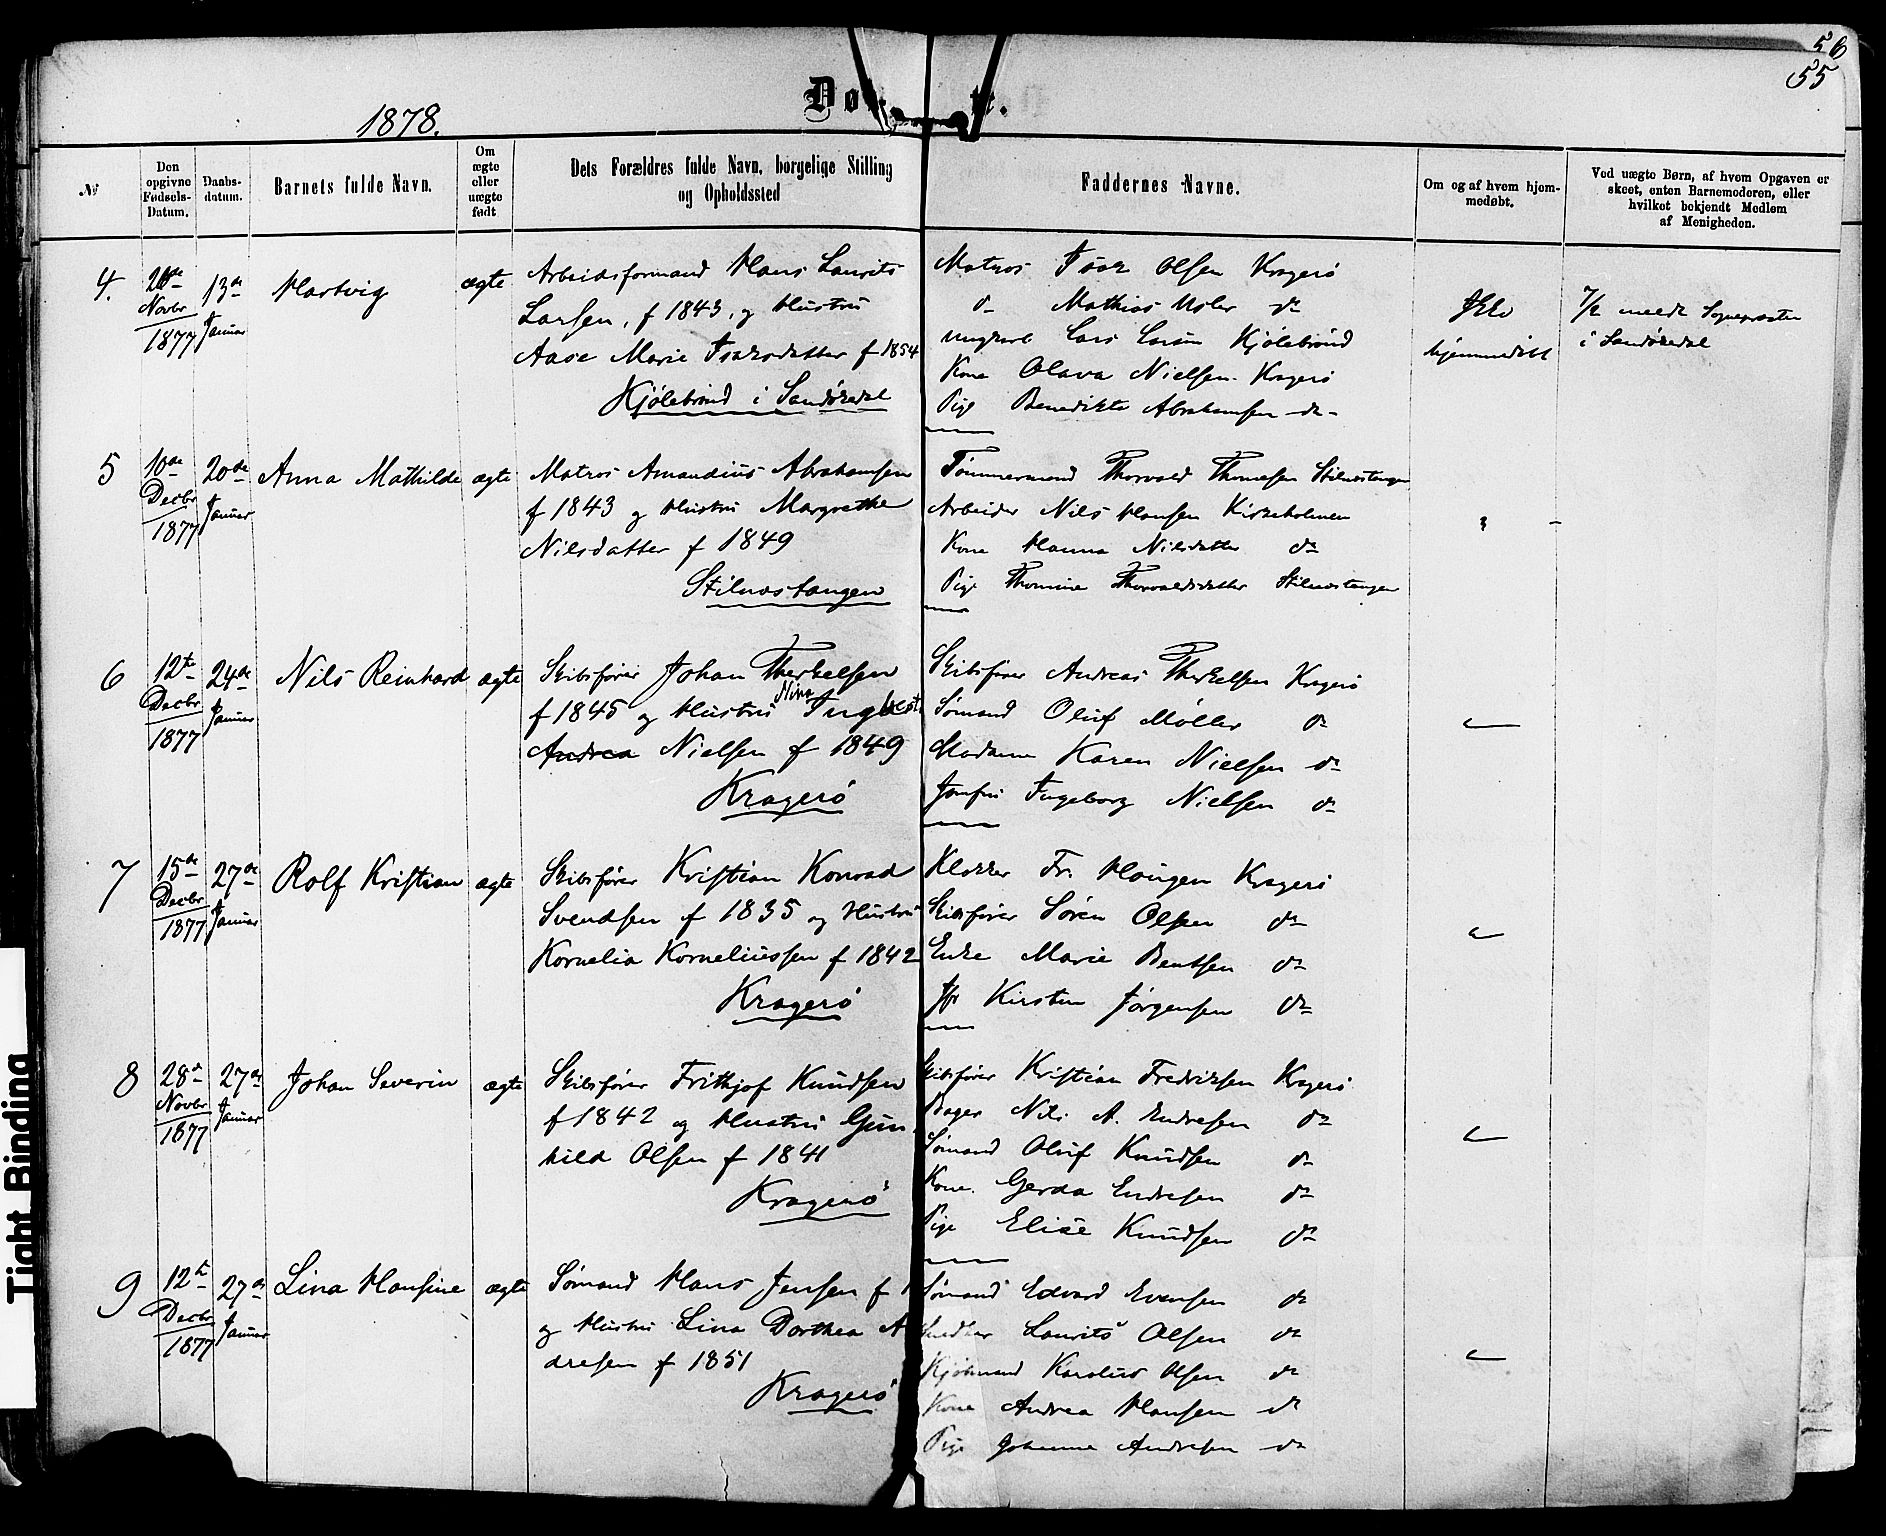 56
55
1878.
Døbte.
№
Den opgivne Fødsels-Datum.
Daabs-datum.
Barnets fulde Navn.
Om ægte eller uægte født
Dets Forældres fulde Navn, borgelige Stilling og Opholdssted
Faddernes Navne.
Om og af hvem hjem-medøbt.
Ved uægte Børn, af hvem Opgaven er skeet, enten Barnemoderen, eller hvilket bekjendt Medlem af Menigheden.
4.
Novbr 1877
13de Januar
Hartvig
ægte
Arbeidsformand Hans Laurits
Larsen, f 1843, og Hustru
Aase Marie Isaksdatter f 1854
Kjølebrønd i Sandøkedal
Matros Isak Olsen Kragerø
do Mathias do
Ungkarl Lars Larsen Kjølebrønd
Kone Olava Nielsen Kragerø
Pige Benedikte Abrahamsen do
Ikke
hjemmedøbt
7/2 meldt Sognepresten
i Sandøkedal
5
10de Decbr 1877
20de Januar
Anna Mathilde
ægte
Matros Amandius Abrahamsen
f 1843 og Hustru Margrethe
Nilsdatter f 1849
Stilnæstangen
Tømmermand Thorvald Thomesen Stilnæstangen
Arbeider Nils Hansen Kirkeholmen
Kone Hanna Nilsdatter do
Pige Thomine Thorvaldsdatter Stilnæstangen
6
12te Decbr 1877
24de Januar
Nils Reinhard
ægte
Skibsfører Johan Therkelsen
f 1845 og Hustru Nina Ingbest.
Andrea Nielsen f 1849
Kragerø
Skibsfører Andreas Therkelsen Kragerø
Sømand Oluf Møller do
Madame Karen Nielsen do
Jomfru Ingeborg Nielsen do
7
15de Decbr 1877
27de Januar
Rolf Kristian
ægte
Skibsfører Kristian Konrad
Svendsen f 1835 og Hustru
Kornelia Korneliussen f 1842
Kragerø
Klokker Fr. Haugen Kragerø
Skibsfører Søren Olsen do
Enke Marie Bentsen do
Jfr Kirsten Jørgensen do
8
28de Novbr 1877
27de Januar
Johan Severin
ægte
Skibsfører Frithjof Knudsen
f 1842 og Hustru Gun
hild Olsen f 1841
Kragerø
Skibsfører Kristian Fredriksen Kragerø
Bager Nils A. Endresen do
Sømand Oluf Knudsen do
Kone Gerda Endresen do
Pige Elise Knudsen do
9
12te Decbr 1877
27de Januar
Lina Hansine
ægte
Sømand Hans Jensen f 1
og Hustru Lina Dorthea A
dresen f 1851
Kragerø
Sømand Edvard Evensen do
Snedker Laurits Olsen do
Kjøbmand Karolius Olsen do
Kone Andrea Hansen do
Pige Johanne Andresen do
Tight Binding